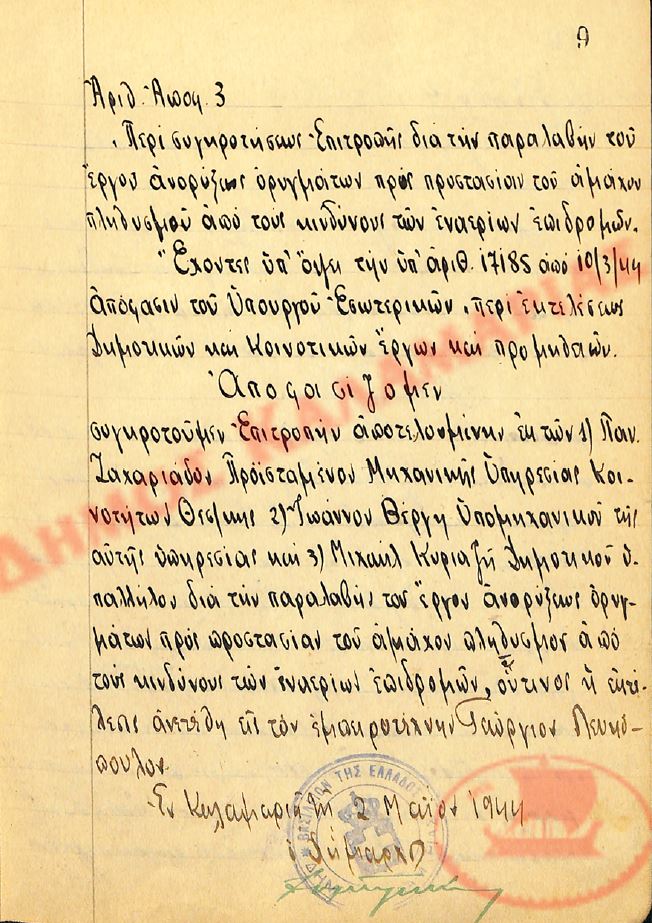 9
Ἀριθ. Ἀποφ. 3
"Περί συγκροτήσεως Ἐπιτροπῆς διά τήν παραλαβήν τοῦ
ἔργου ἀνορύξεως ὀρυγμάτων πρός προστασίαν τοῦ ἀμάχου
πληθυσμοῦ ἀπό τούς κινδύνους τῶν ἐναερίων ἐπιδρομῶν.
Ἔχοντες ὑπ' ὄψει τήν ὑπ' ἀριθ. 17185 ἀπό 10/3/44
ἀπόφασιν τοῦ Ὑπουργοῦ Ἐσωτερικῶν "περί ἐκτελέσεως
Δημοτικῶν καί Κοινοτικῶν ἔργων καί προμηθειῶν.
Ἀποφασίζομεν
συγκροτοῦμεν Ἐπιτροπήν ἀποτελουμένην ἐκ τῶν 1) Παν.
Ζαχαριάδου Προϊσταμένου Μηχανικῆς Ὑπηρεσίας Κοι-
νοτήτων Θεσ/κης 2) Ἰωάννου Βέργη Ὑπομηχανικοῦ τῆς
αὐτῆς ὑπηρεσίας καί 3) Μιχαήλ Κυριαζῆ Δημοτικοῦ ὑ-
παλλήλου διά τήν παραλαβήν τοῦ ἔργου ἀνορύξεως ὀρυγ-
μάτων πρός προστασίαν τοῦ ἀμάχου πληθυσμοῦ ἀπό
τούς κινδύνους τῶν ἐναερίων ἐπιδρομῶν, οὗτινος ἡ ἐκτέ-
λεσις ἀνετέθη εἰς τόν ἐμπειροτέχνην Γεώργιον Λευκό-
πουλον.
Ἐν Καλαμαριᾷ τῇ 2 Μαΐου 1944
ὁ Δήμαρχος
ΒΑΣΙΛΕΙΟΝ ΤΗΣ ΕΛΛΑΔΟΣ
ΔΗΜΟΣ ΚΑΛΑΜΑΡΙΑΣ